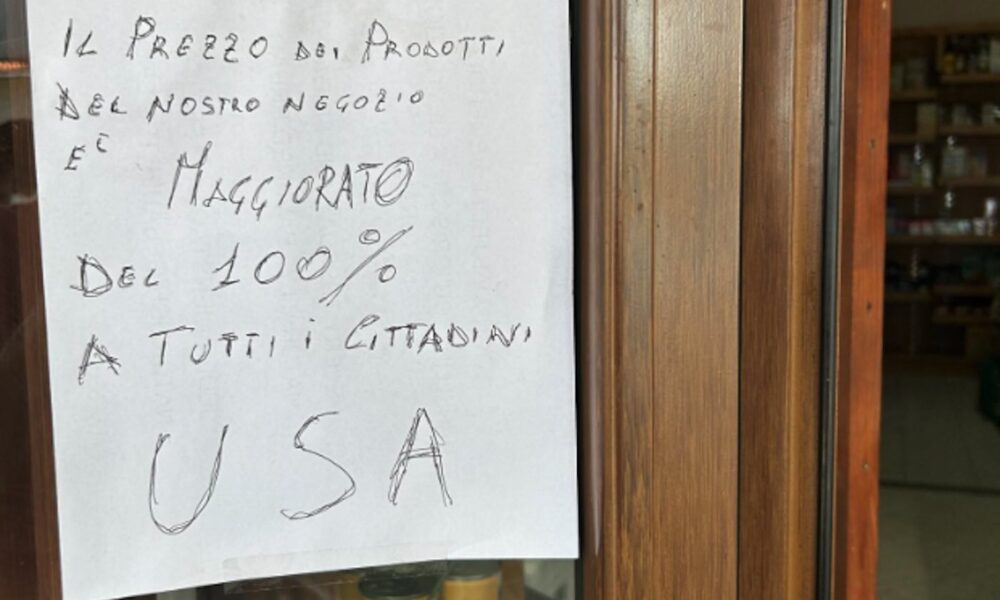 IL PREZZO DEI PRODOTTI
DEL NOSTRO NEGOZIO
E' MAGGIORATO
DEL 100%
A TUTTI i CITTADINI
USA